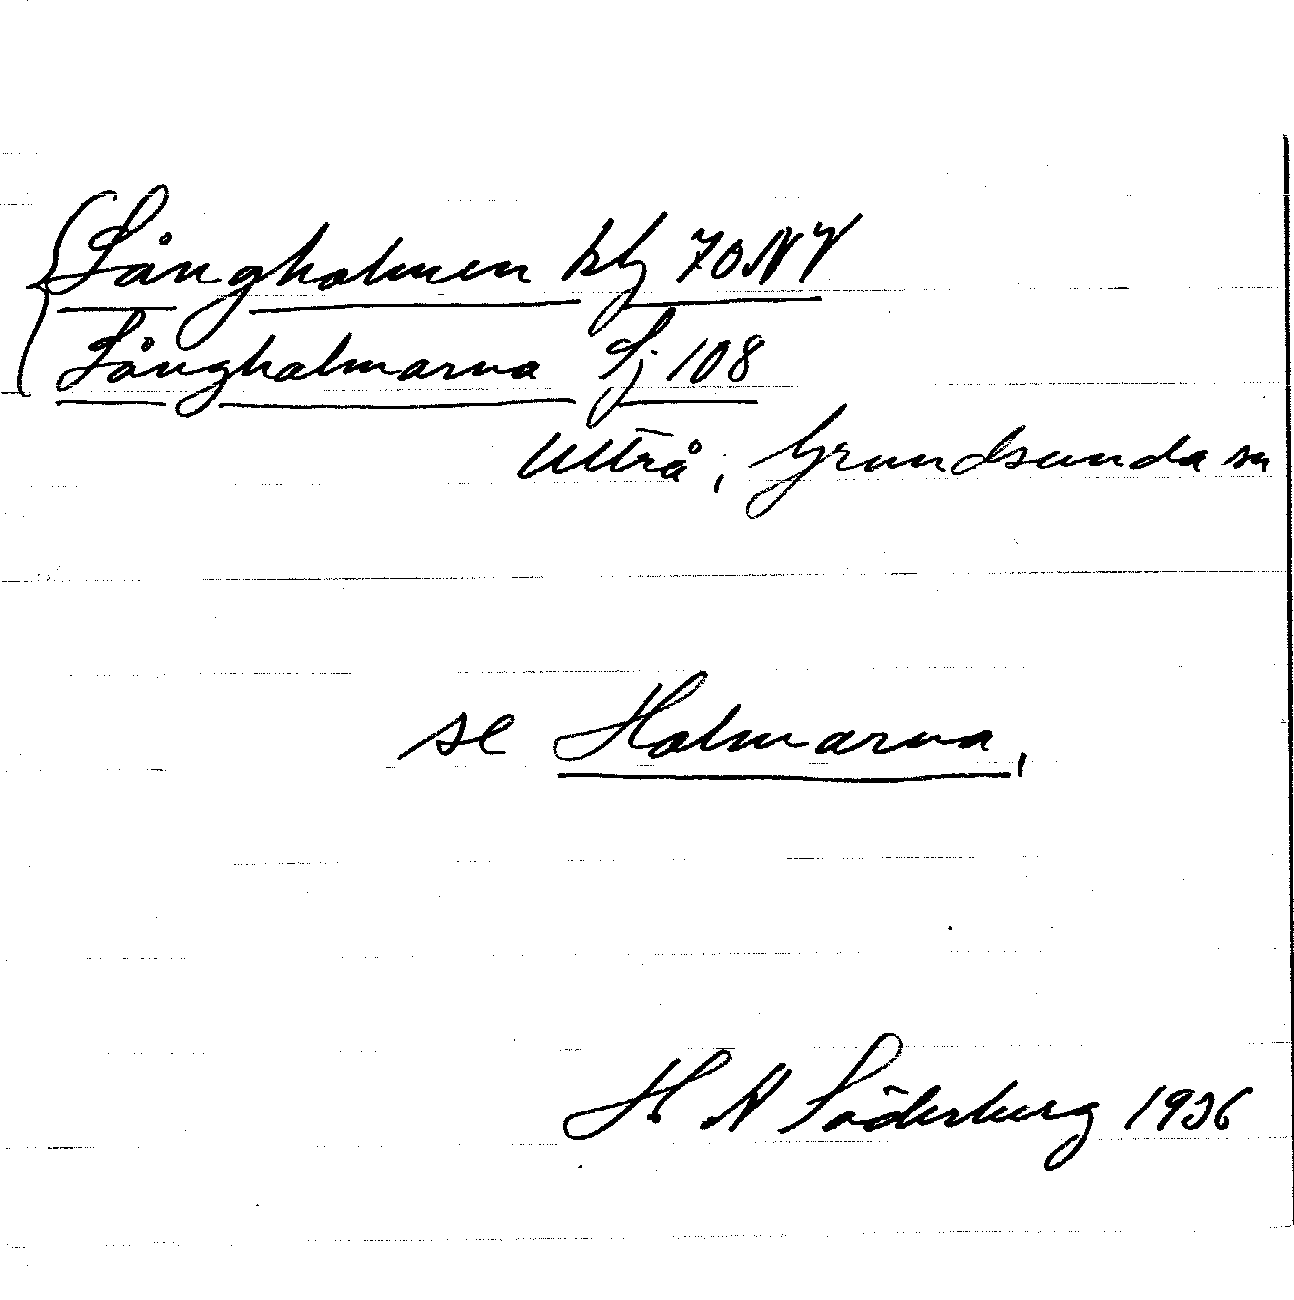 Långholmen blz 70 NV
Långholmarna Sj 108
Ultrå, Grundsunda sn
se Holmarna,
H N Söderberg 1936